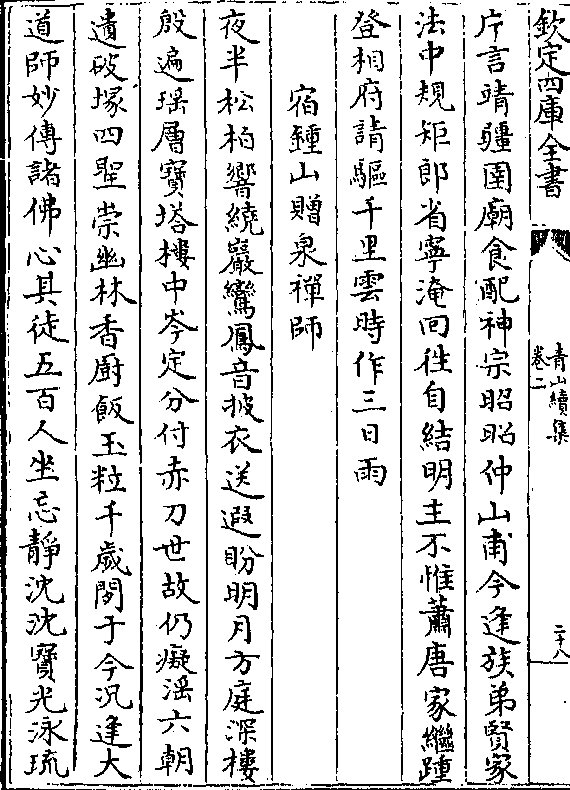 欽定四庫全書
青山續集
卷二
二十八
片言靖疆圉廟食配神宗昭昭仲山甫今逢族弟賢家
法中規矩郎省寧淹回徃自結明主不惟蕭唐家繼踵
登相府請驅千里雲時作三日雨
宿鍾山贈泉禪師
夜半松柏響繞巖鸞鳳音披衣送遐盼明月方庭深樓
殿遍瑶層寶塔樓中岑定分付赤刀世故仍癡滛六朝
遺破塚四聖崇幽林香廚飯玉粒千歲閱于今況逢大
道師妙傳諸佛心其徒五百人坐忘靜沈沈寶光泳琉